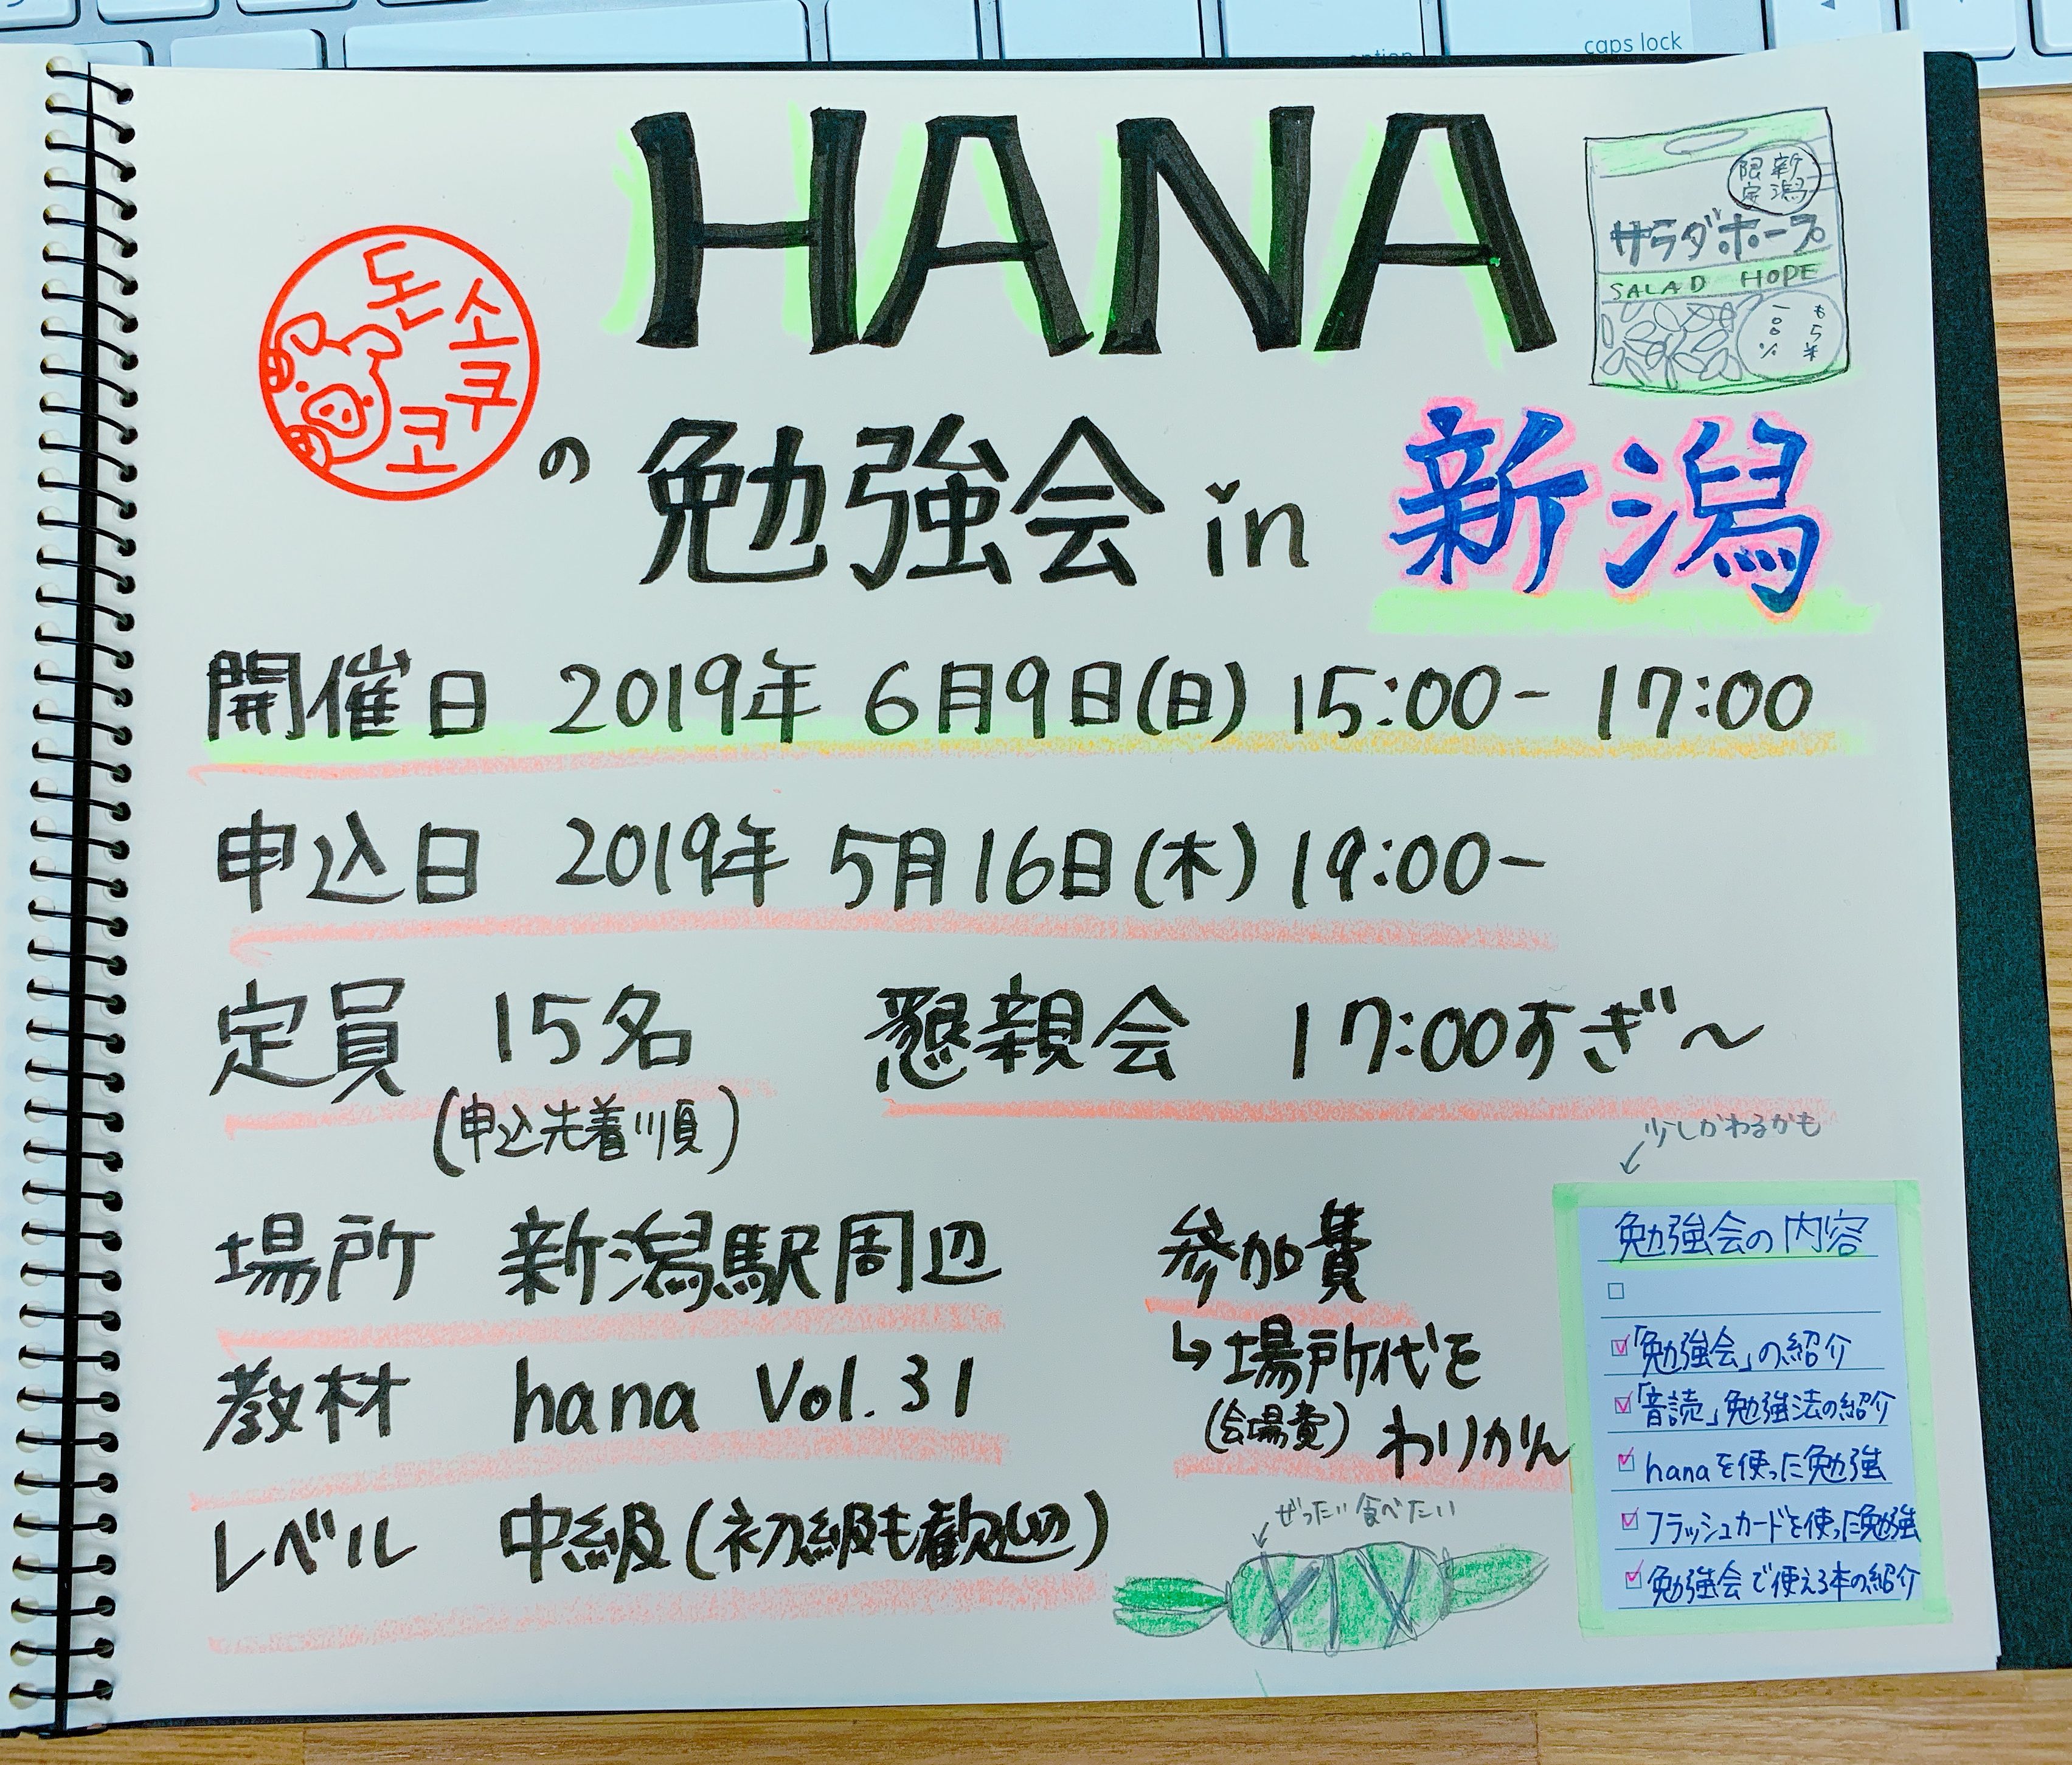 caps lock
option
HANA
新潟
限定
サラダホープ
SALAD HOPE
もち米
100%
돈소쿠코
の 勉強会 in 新潟
開催日 2019年 6月9日(日) 15:00- 17:00
申込日 2019年 5月16日(木) 19:00-
定員 15名 懇親会 17:00すぎ~
(申込先着順)
少しかわるかも
場所 新潟駅周辺 参加費
↳ 場所代を
(会場費) わりかん
教材 hana Vol. 31
レベル 中級(初級も歓迎)
ぜったい食べたい
勉強会の内容
□
☑「勉強会」の紹介
☑「音読」勉強法の紹介
☑ hanaを使った勉強
☑ フラッシュカードを使った勉強
☑ 勉強会で使える本の紹介